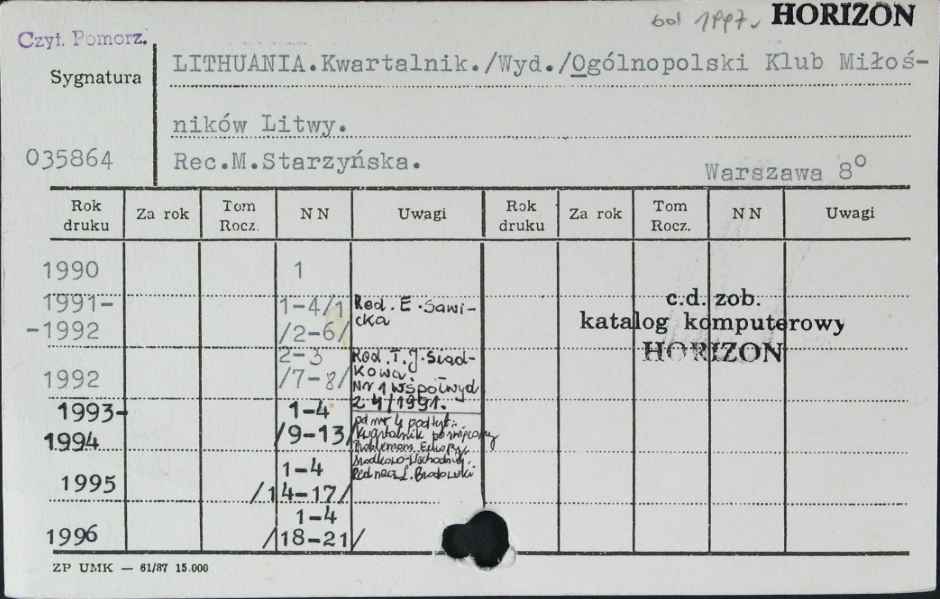 od 1997. HORIZON
Czyt. Pomorz.
Sygnatura
LITHUANIA.Kwartalnik./Wyd./Ogólnopolski Klub Miłoś-
ników Litwy.
035864
Rec.M.Starzyńska.
Warszawa 8°
Rok druku Za rok Tom Rocz. NN Uwagi Rok druku Za rok Tom Rocz. NN Uwagi
1990 1
1991- 1-4/1 Red. E. Sawi-
-1992 /2-6/ cka
c.d. zob.
katalog komputerowy
HORIZON
2-3 Red. T. J. Siad-
1992 /7-8/ kowa.
Nr 1 współwyd
z 4/1991.
1993- 1-4 od nr 4 podtyt.:
1994 /9-13/ Kwartalnik poświęcony
Problemom Europy
Środkowo-Wschodniej.
1995 1-4 Red nacz. L. Brodowski
/14-17/
1996 1-4
/18-21/
ZP UMK — 61/87 15.000